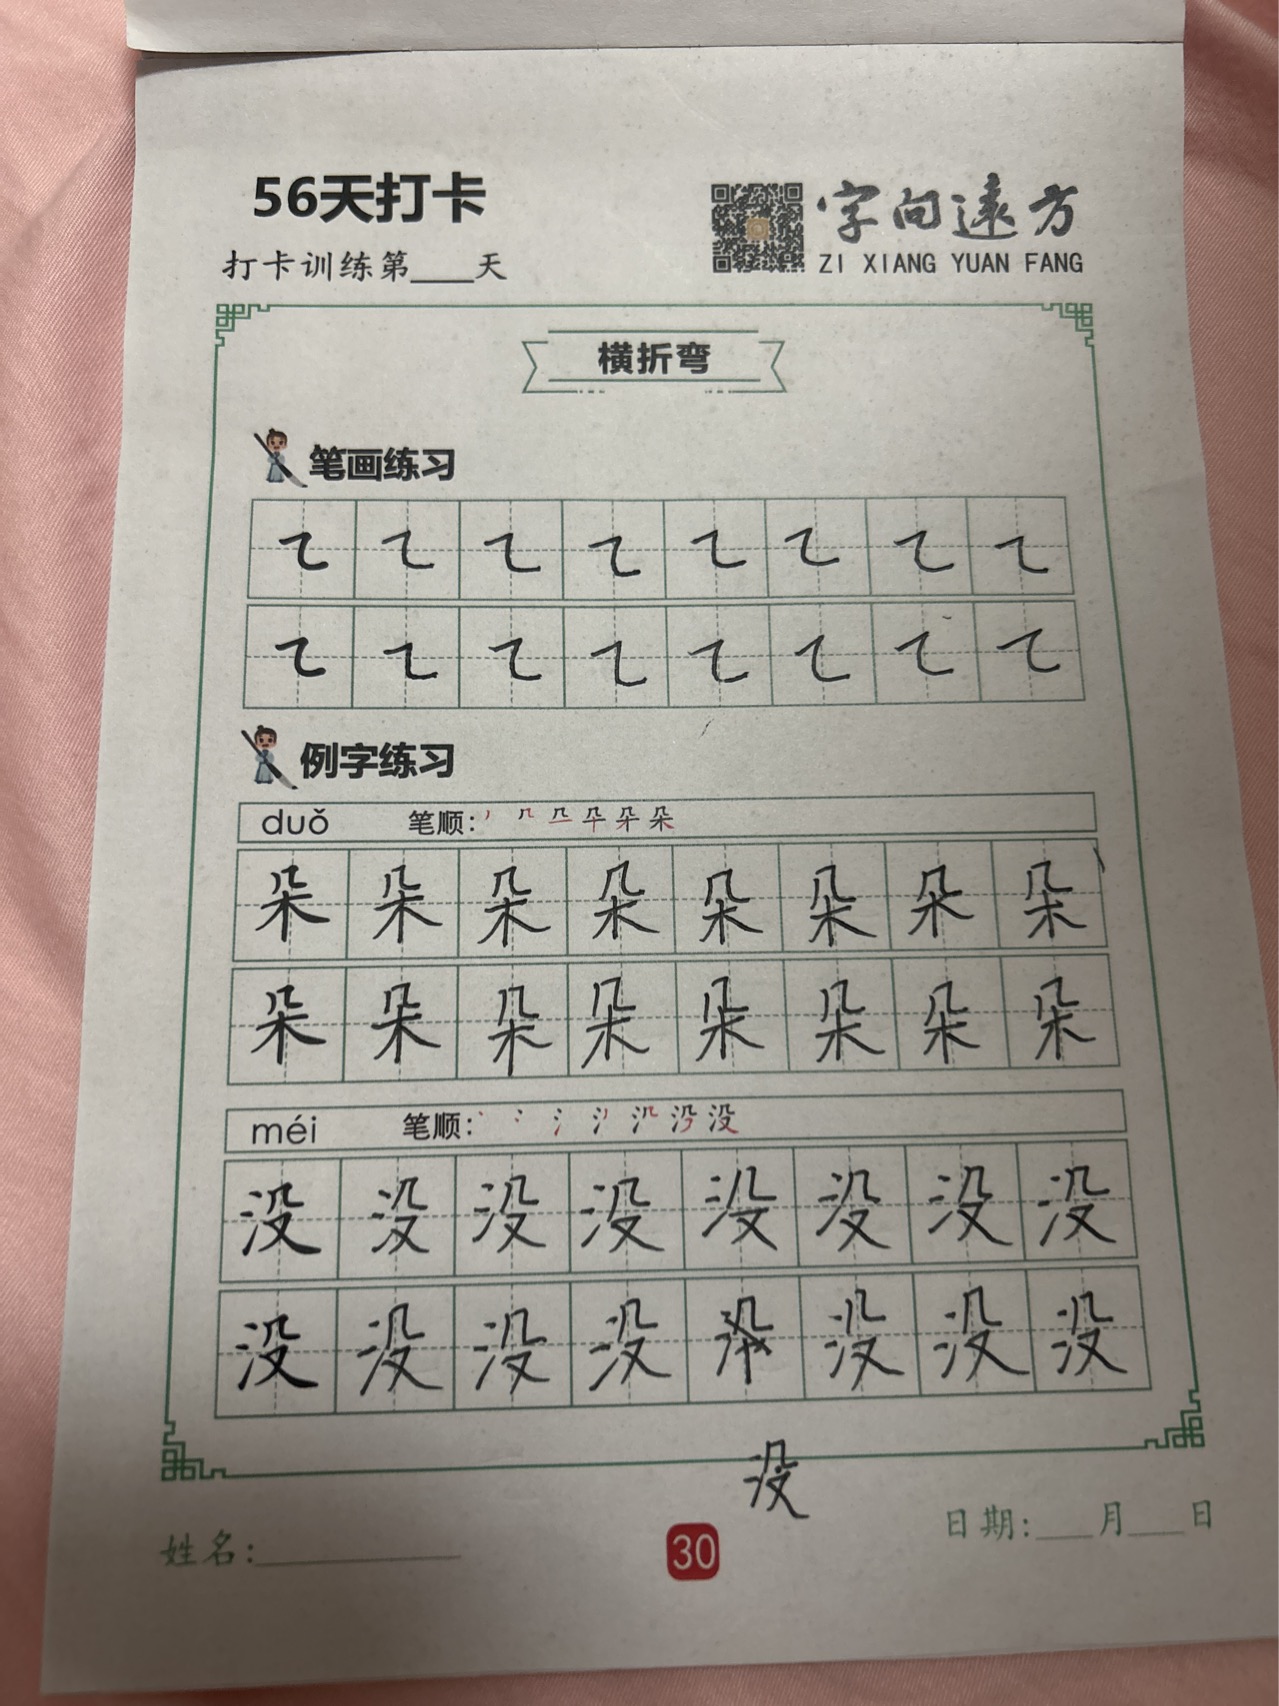 56天打卡
打卡训练第____天
字向远方
ZI XIANG YUAN FANG
横折弯
笔画练习
㇍ ㇍ ㇍ ㇍ ㇍ ㇍ ㇍ ㇍
㇍ ㇍ ㇍ ㇍ ㇍ ㇍ ㇍ ㇍
例字练习
duǒ 笔顺:
朵 朵 朵 朵 朵 朵 朵 朵
朵 朵 朵 朵 朵 朵 朵 朵
méi 笔顺:
没 没 没 没 没 没 没 没
没 没 没 没 没 没 没
没
姓名:____________
30
日期:____月____日